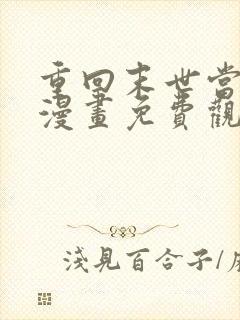 重回末世當
漫畫免費觀
淺見百合子/